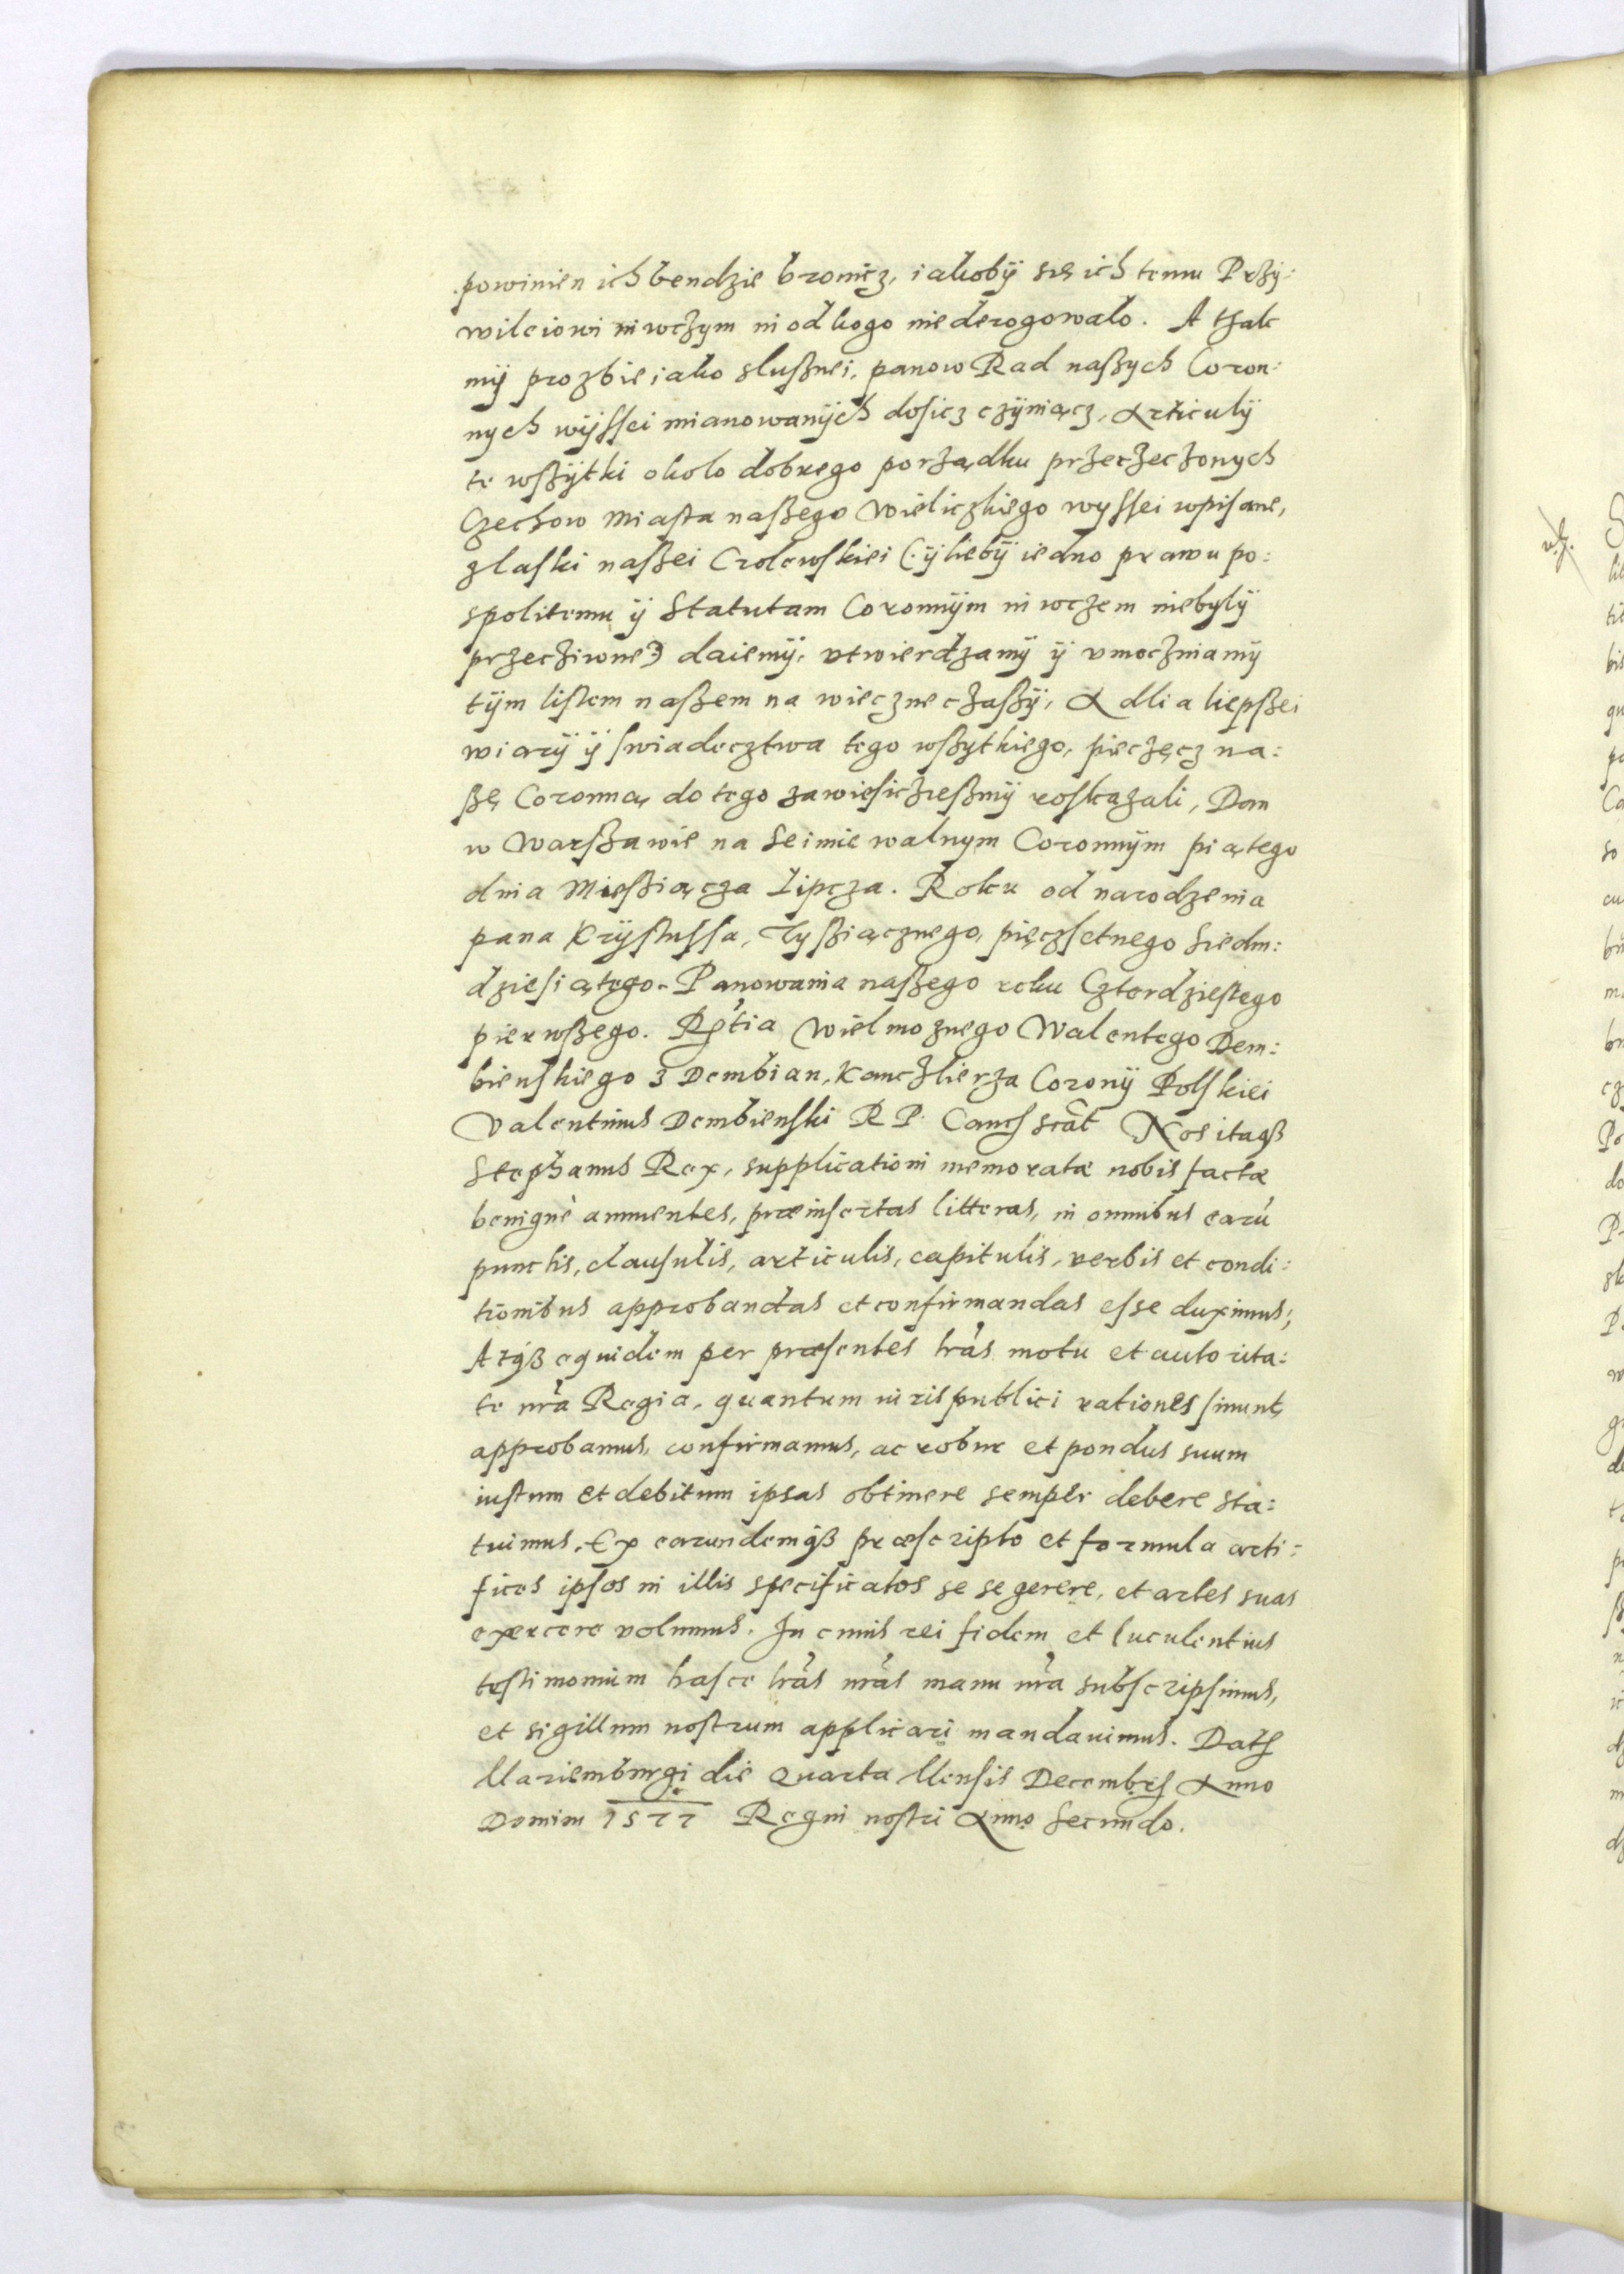 powinien ich bendzie bronicz, iakobÿ się ich temu Przÿ:
wileiowi niwczym ni od kogo niederogowało. A tħak
mÿ prozbie iako slußnei, panow Rad naßych Coron:
nych wÿssei mianowanÿch dosicz czÿniącz, Articulÿ
te wßÿtki okolo dobrego porządku przerzeczonych
Czechow Miasta naßego Wieliczkiego wyssei wpisane,
zlaski naßei Crolewskiei (:ÿliebÿ iedno prawu po:
spolitemu ÿ Statutam Coronnÿm ni wczem niebylÿ
przecziwne:) daiemÿ, vtwierdzamÿ ÿ vmoczniamÿ
tÿm listem naßem na wieczne czaßÿ, A dlia liepßei
wiarÿ ÿ swiadecztwa tego wßytkiego, pieczęcz na:
ßę Coronną do tego zawiesicziesmÿ roskazali, Dan
w Warßawie na Seimie walnym Coronnÿm piątego
dnia Mießiącza Lipcza. Roku od narodzenia
pana Krÿstussa, Tyßiącznego, pięczsetnego Siedm:
dziesiątego. Panowania naßego roku Czterdziestego
pierwßego. Rẽtia Wielmoznego Walentego Dem:
bienskiego z Dembian, Kanczlierza Coronÿ Polskiei
Valentinus Dembienski R P. Canc̃ scãt Nos itaqß
Stephanus Rex, supplicationi memoratæ nobis factæ
benignè annuentes, præinsertas litteras, in omnibus earũ
punctis, clausulis, articulis, capitulis, verbis et condi:
tionibus approbandas et confirmandas esse duximus;
Atqß equidem per præsentes lr̃as motu et autorita:
te nr̃a Regia, quantum iuris publici rationes sinunt,
approbamus, confirmamus, ac robur et pondus suum
iustum et debitum ipsas obtinere semper debere sta:
tuimus. Ex earundemqß præscripto et formula arti:
fices ipsos in illis specificatos se se gerere, et artes suas
exercere volumus. In cuius rei fidem et luculentius
testimonium hasce lr̃as nr̃as manu nr̃a subscripsimus,
et sigillum nostrum applicari mandauimus. Dat̃
Mariemburgi die Quarta Mensis Decembr̃ Anno
Domini 1577 Regni nostri Anno Secundo.